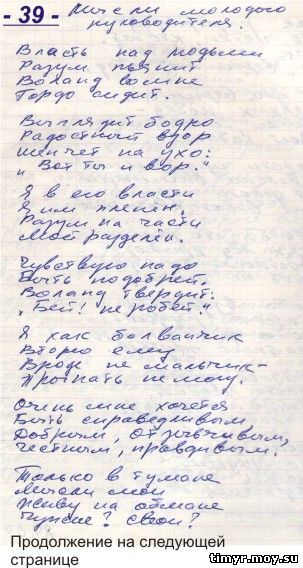 - 39 -
Мысли молодого
руководителя.
Власть над людьми
Разум пьянит
Воланд во мне
Гордо сидит.
Выглядит бодро
Радостный взор
Шепчет на ухо:
"Вот ты и вор."
Я в его власти
Я им пленён.
Разум на части
Мой разделён.
Чувствую надо
Быть подобрей.
Воланд твердит:
"Бей! не робей!"
Я как болванчик
Вторю ему
Вроде не мальчик -
Прогнать не могу.
Очень мне хочется
Быть справедливым,
Добрым, отзывчивым,
честным, правдивым.
Только в тумане
Мысли мои
Живу на обмане
Чужие? Свои?
Продолжение на следующей
странице
timyr.moy.su